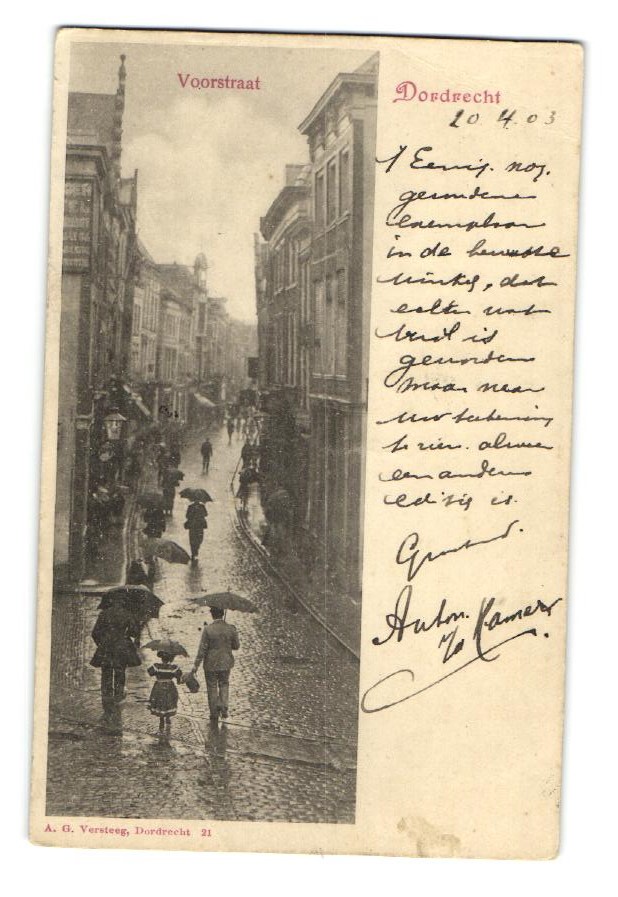 Voorstraat
Dordrecht
20.4.03
1 Eenig. nog.
gevonden
exemplaar
in de bewuste
winkel, dat
echter wat
vuil is
geworden
maar naar
uw
te zien. alweer
een andere
editie is.
Groetend.
Anton.
A. G. Versteeg, Dordrecht 21